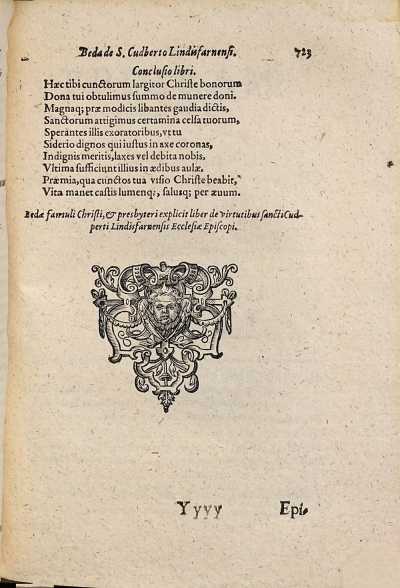 Beda de S. Cudberto Lindisfarnensi. 723
Conclusio libri.
Hæc tibi cunctorum largitor Christe bonorum
Dona tui obtulimus summo de munere doni.
Magnaq; præ modicis libantes gaudia dictis,
Sanctorum attigimus certamina celsa tuorum,
Sperantes illis exoratoribus, vt tu
Siderio dignos qui iustus in axe coronas,
Indignis meritis, laxes vel debita nobis,
Vltima sufficiunt illius in ædibus aulæ.
Præmia, qua cunctos tua visio Christe beabit,
Vita manet castis lumenq;, salusq; per æuum.
Bedæ famuli Christi, & presbyteri explicit liber de virtutibus sancti Cud-
perti Lindisfarnensis Ecclesiæ Episcopi.
Yyyy Epi-